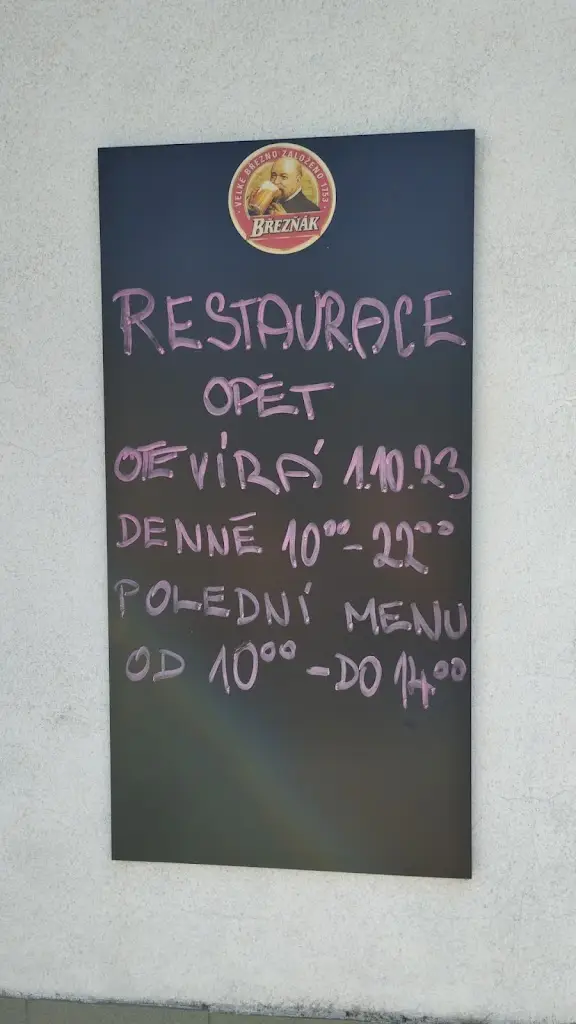 VELKÉ BŘEZNO ZALOŽENO 1753
BŘEZŇÁK
RESTAURACE
OPĚT
OTEVÍRÁ 1.10.23
DENNĚ 10⁰⁰-22⁰⁰
POLEDNÍ MENU
OD 10⁰⁰-DO 14⁰⁰